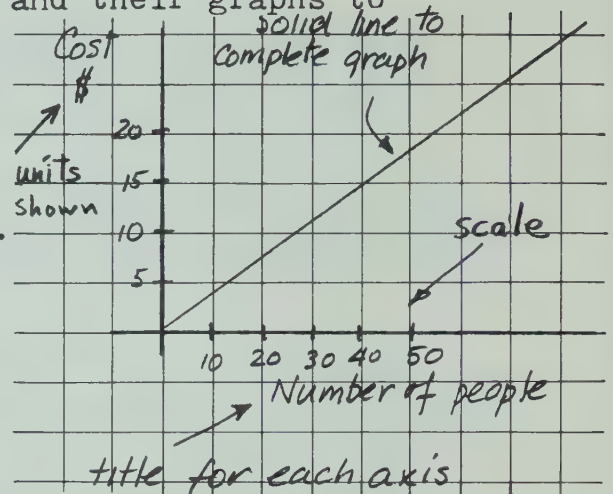 and their graphs to
solid line to
complete graph
Cost
$
units
shown
20
15
10
5
scale
10 20 30 40 50
Number of people
title for each axis